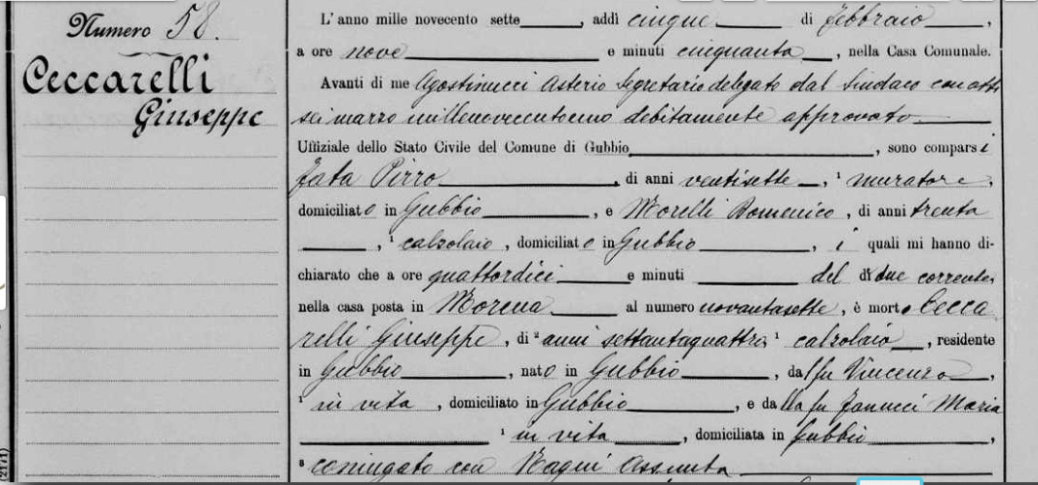 Numero 58.
Ceccarelli
Giuseppe
L'anno mille novecento sette, addì cinque di febbraio,
a ore nove e minuti cinquanta, nella Casa Comunale.
Avanti di me Agostinucci Asterio Segretario delegato dal Sindaco con atto
sei marzo millenovecentouno debitamente approvato
Uffiziale dello Stato Civile del Comune di Gubbio, sono comparsi
Pirro, di anni ventisette, ¹ muratore,
domiciliato in Gubbio, e Morelli Domenico, di anni trenta
, ¹ calzolaio, domiciliato in Gubbio, i quali mi hanno di-
chiarato che a ore quattordici e minuti del dì due corrente,
nella casa posta in Morena al numero novantasette, è morto Cecca
relli Giuseppe, di ² anni settantaquattro, ¹ calzolaio, residente
in Gubbio, nato in Gubbio, dal fu Vincenzo,
¹ in vita, domiciliato in Gubbio, e dalla fu Maria
¹ in vita, domiciliata in Gubbio,
³ coniugato con Assunta
(2171)